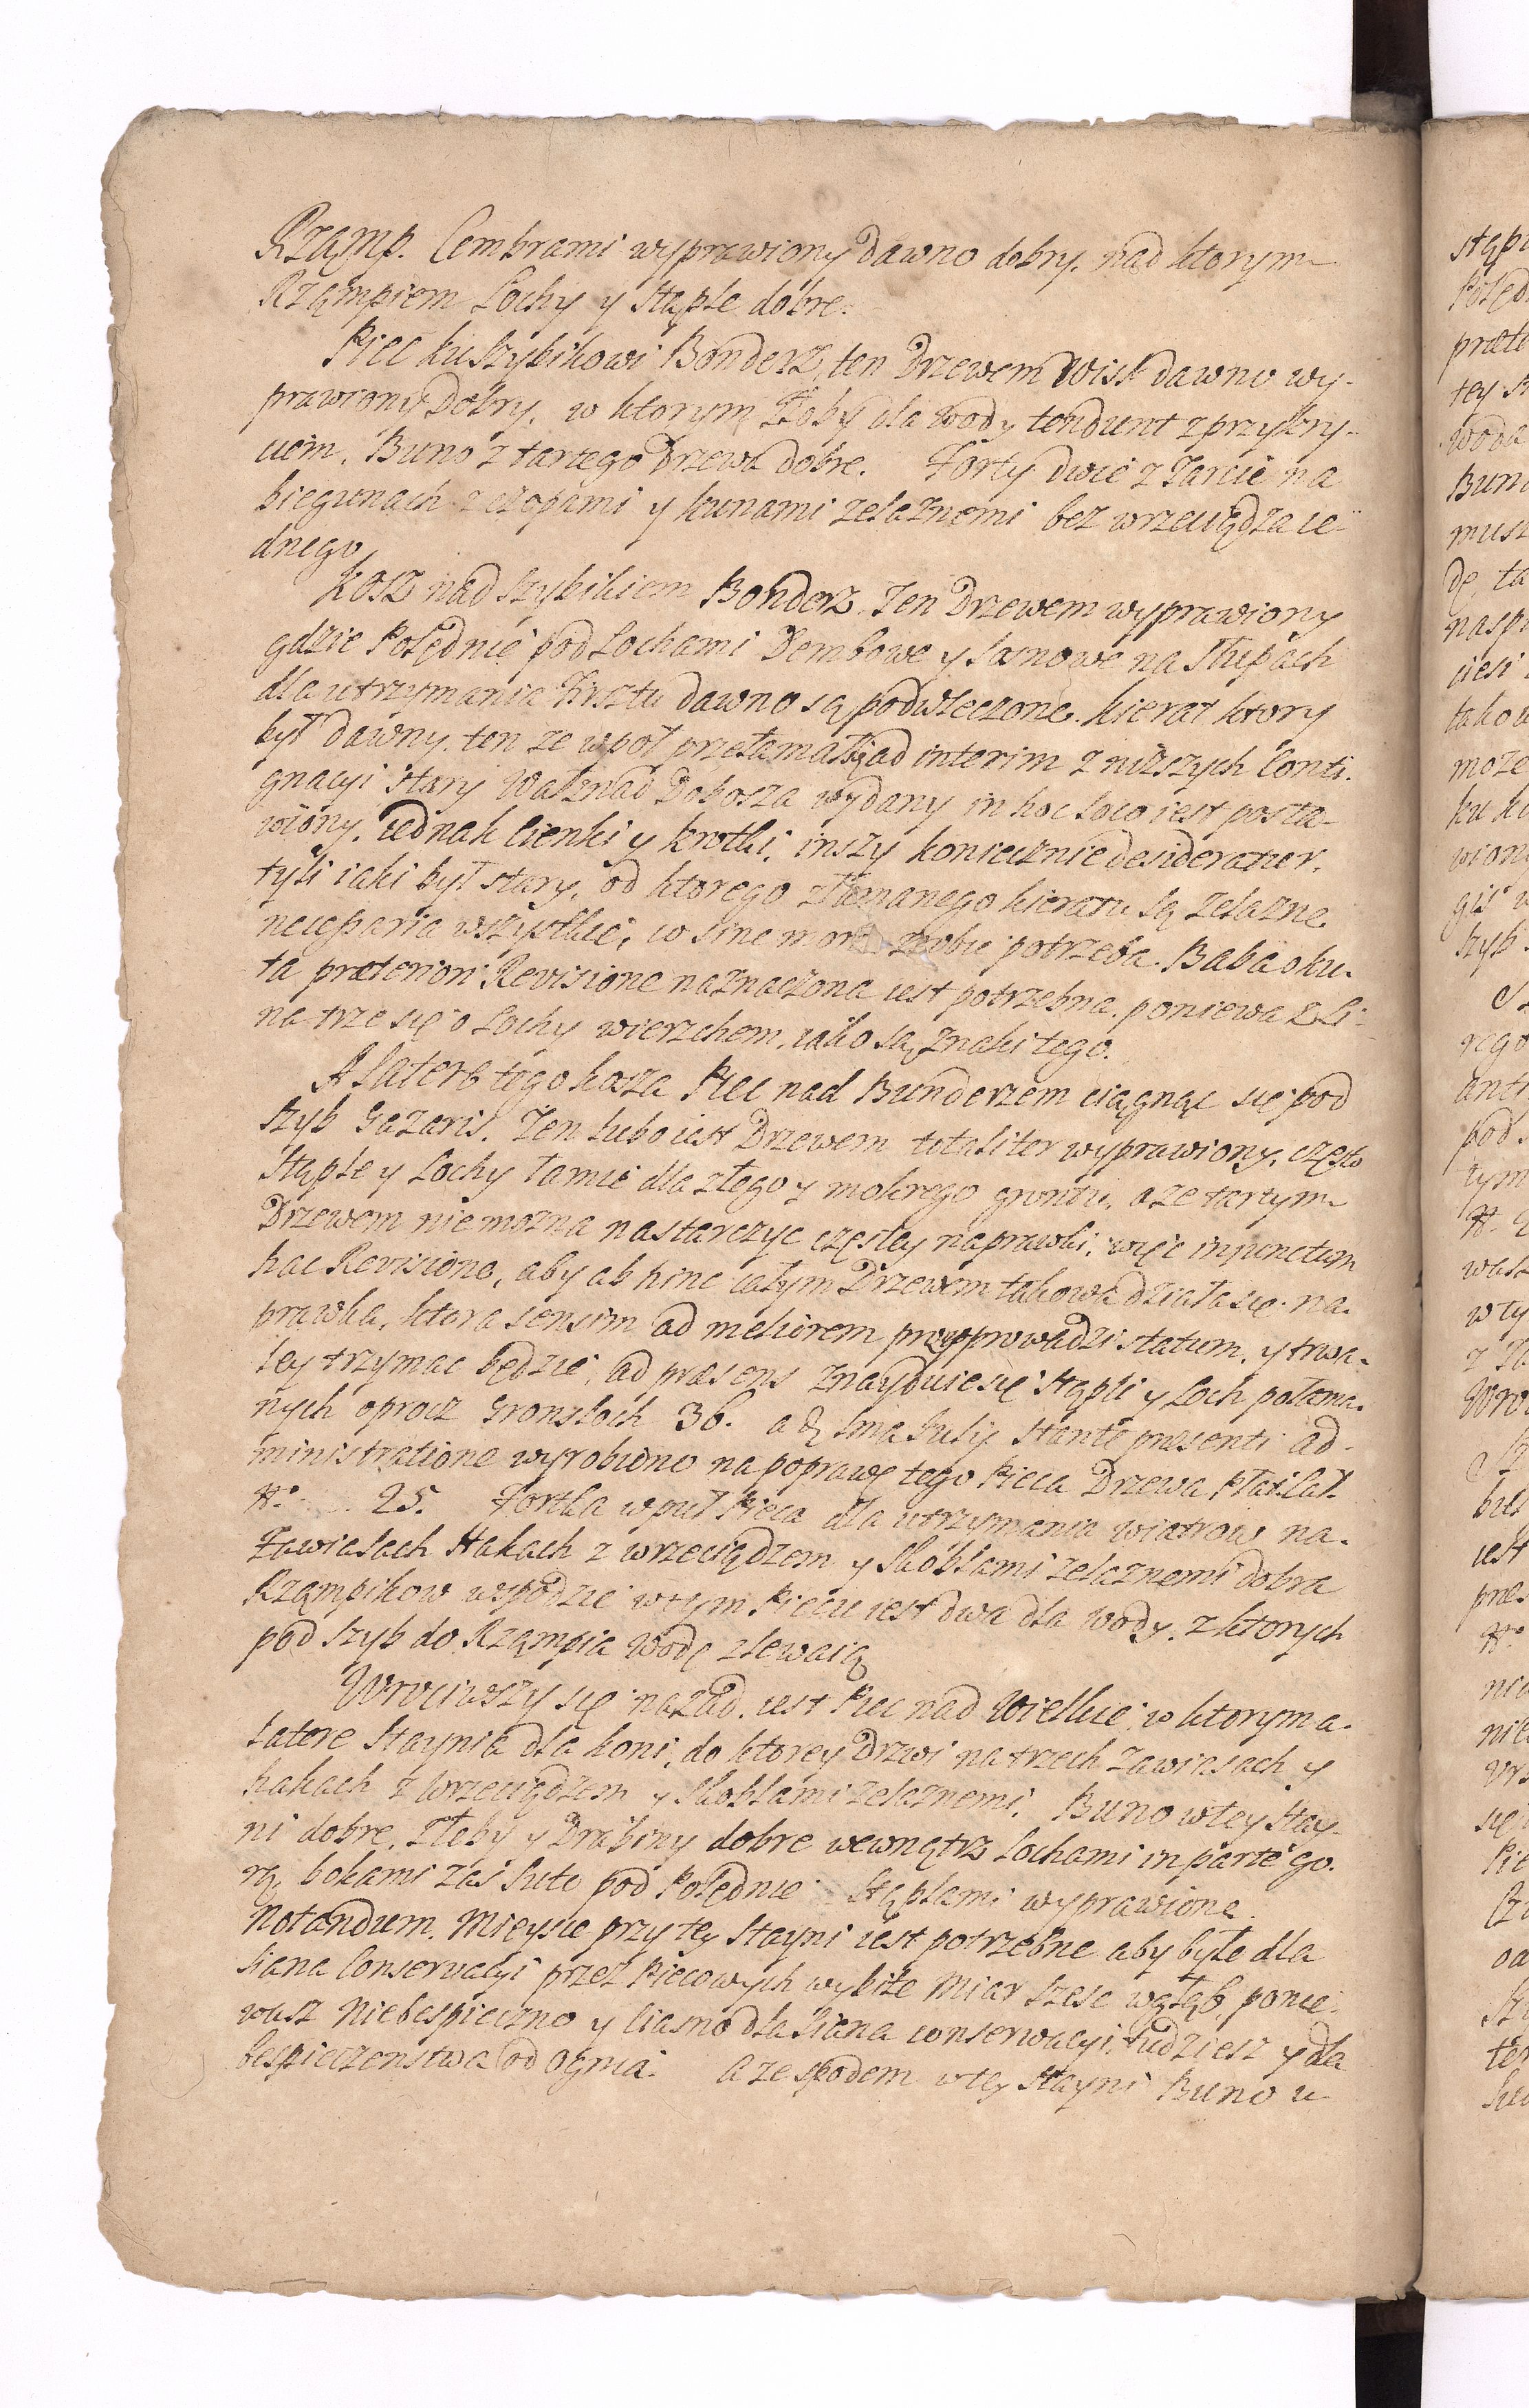 Rząmp. Cembrami wyprawiony dawno dobry. nad ktorym
Rząmpiem Lochy y stąple dobre.
Piec ku Szybikowi Bonderz, ten Drzewem wisk dawno wy-
prawiony Dobry, w ktorym Żłoby dla wody tendunt z przykry-
ciem. Buno z tartego Drzewa dobre. Forty dwie z Tarcic na
biegunach z czopami y kunami zelaznemi bez wrzeciądza ie-
dnego
Kosz nad szybikiem Bonderz. Ten Drzewem wyprawiony
gdzie Polędnie pod Lochami Dembowe y sosnowe na Słupach
dla utrzymania Firsztu dawno są podwleczone. kierat ktory
był dawny. ten ze wpoł przełamał się ad interim z niższych Conti-
gnacyi stary Wał znad Dobosza wydany in hoc loco iest posta-
wiony. iednak Cienki y krotki. inszy koniecznie desideratur.
tyli iaki był stary, od ktorego złamanego kieratu są zelazne
necessaria wszystkie, co sine mora zrobic potrzeba. Baba oku-
ta præteriori Revisione naznaczona iest potrzebna. poniewaz Li-
na trze się o Lochy wierzchem, iako są znaki tego.
A latere tego kosza Piec nad Bunderzem ciągnąc się pod
szyb Gazaris. Ten lubo iest Drzewem totaliter wyprawiony, często
Stąple y Lochy łamie dla złego y mokrego gruntu. a ze tartym
Drzewem nie mozna nastarczyc częstey naprawki. więc injunctum
hac Revisione, aby ab hinc całym Drzewem takowa działa się na-
prawka, ktora sensim ad meliorem przyprowadzi statum. y trwa-
ley trzymac będzie. ad præsens znayduie się stąpli y Loch połama-
nych oprocz Gronzloch 36. a dę 1ma Julij stante præsenti ad-
ministratione wyrobiono na poprawę tego Pieca Drzewa Płat: lat.
No 25. Fortka w puł Pieca dla utrzymania wiatrow na
Zawiasach Hakach z wrzeciądzem y skoblami zelaznemi dobra
Rząmpikow wspodzie w tym Piecu iest dwa dla wody. z ktorych
pod szyb do Rząmpia wodę zlewaią
Wrociwszy się nazad. iest Piec nad Wielkie, w ktorym a
latere Staynia dla koni, do ktorey Drzwi na trzech zawiasach y
hakach z wrzeciądzem y skoblami zelaznemi. Buno w tey stay-
ni dobre, Złoby y Drabiny dobre wewnątrz Lochami in parte go-
rą, bokami zas suto pod Polędnie Stąplami wyprawione.
Notandum. Mieysce przy tey Stayni iest potrzebne aby było dla
siana Conservacyi przez Piecowych wybite miar szesc wgłąb, ponie-
wasz niebespieczno y ciasno dla siana conserwacyi. tudziesz y dla
bespieczenstwa od ognia. a ze spodem w tey stayni Buno u-